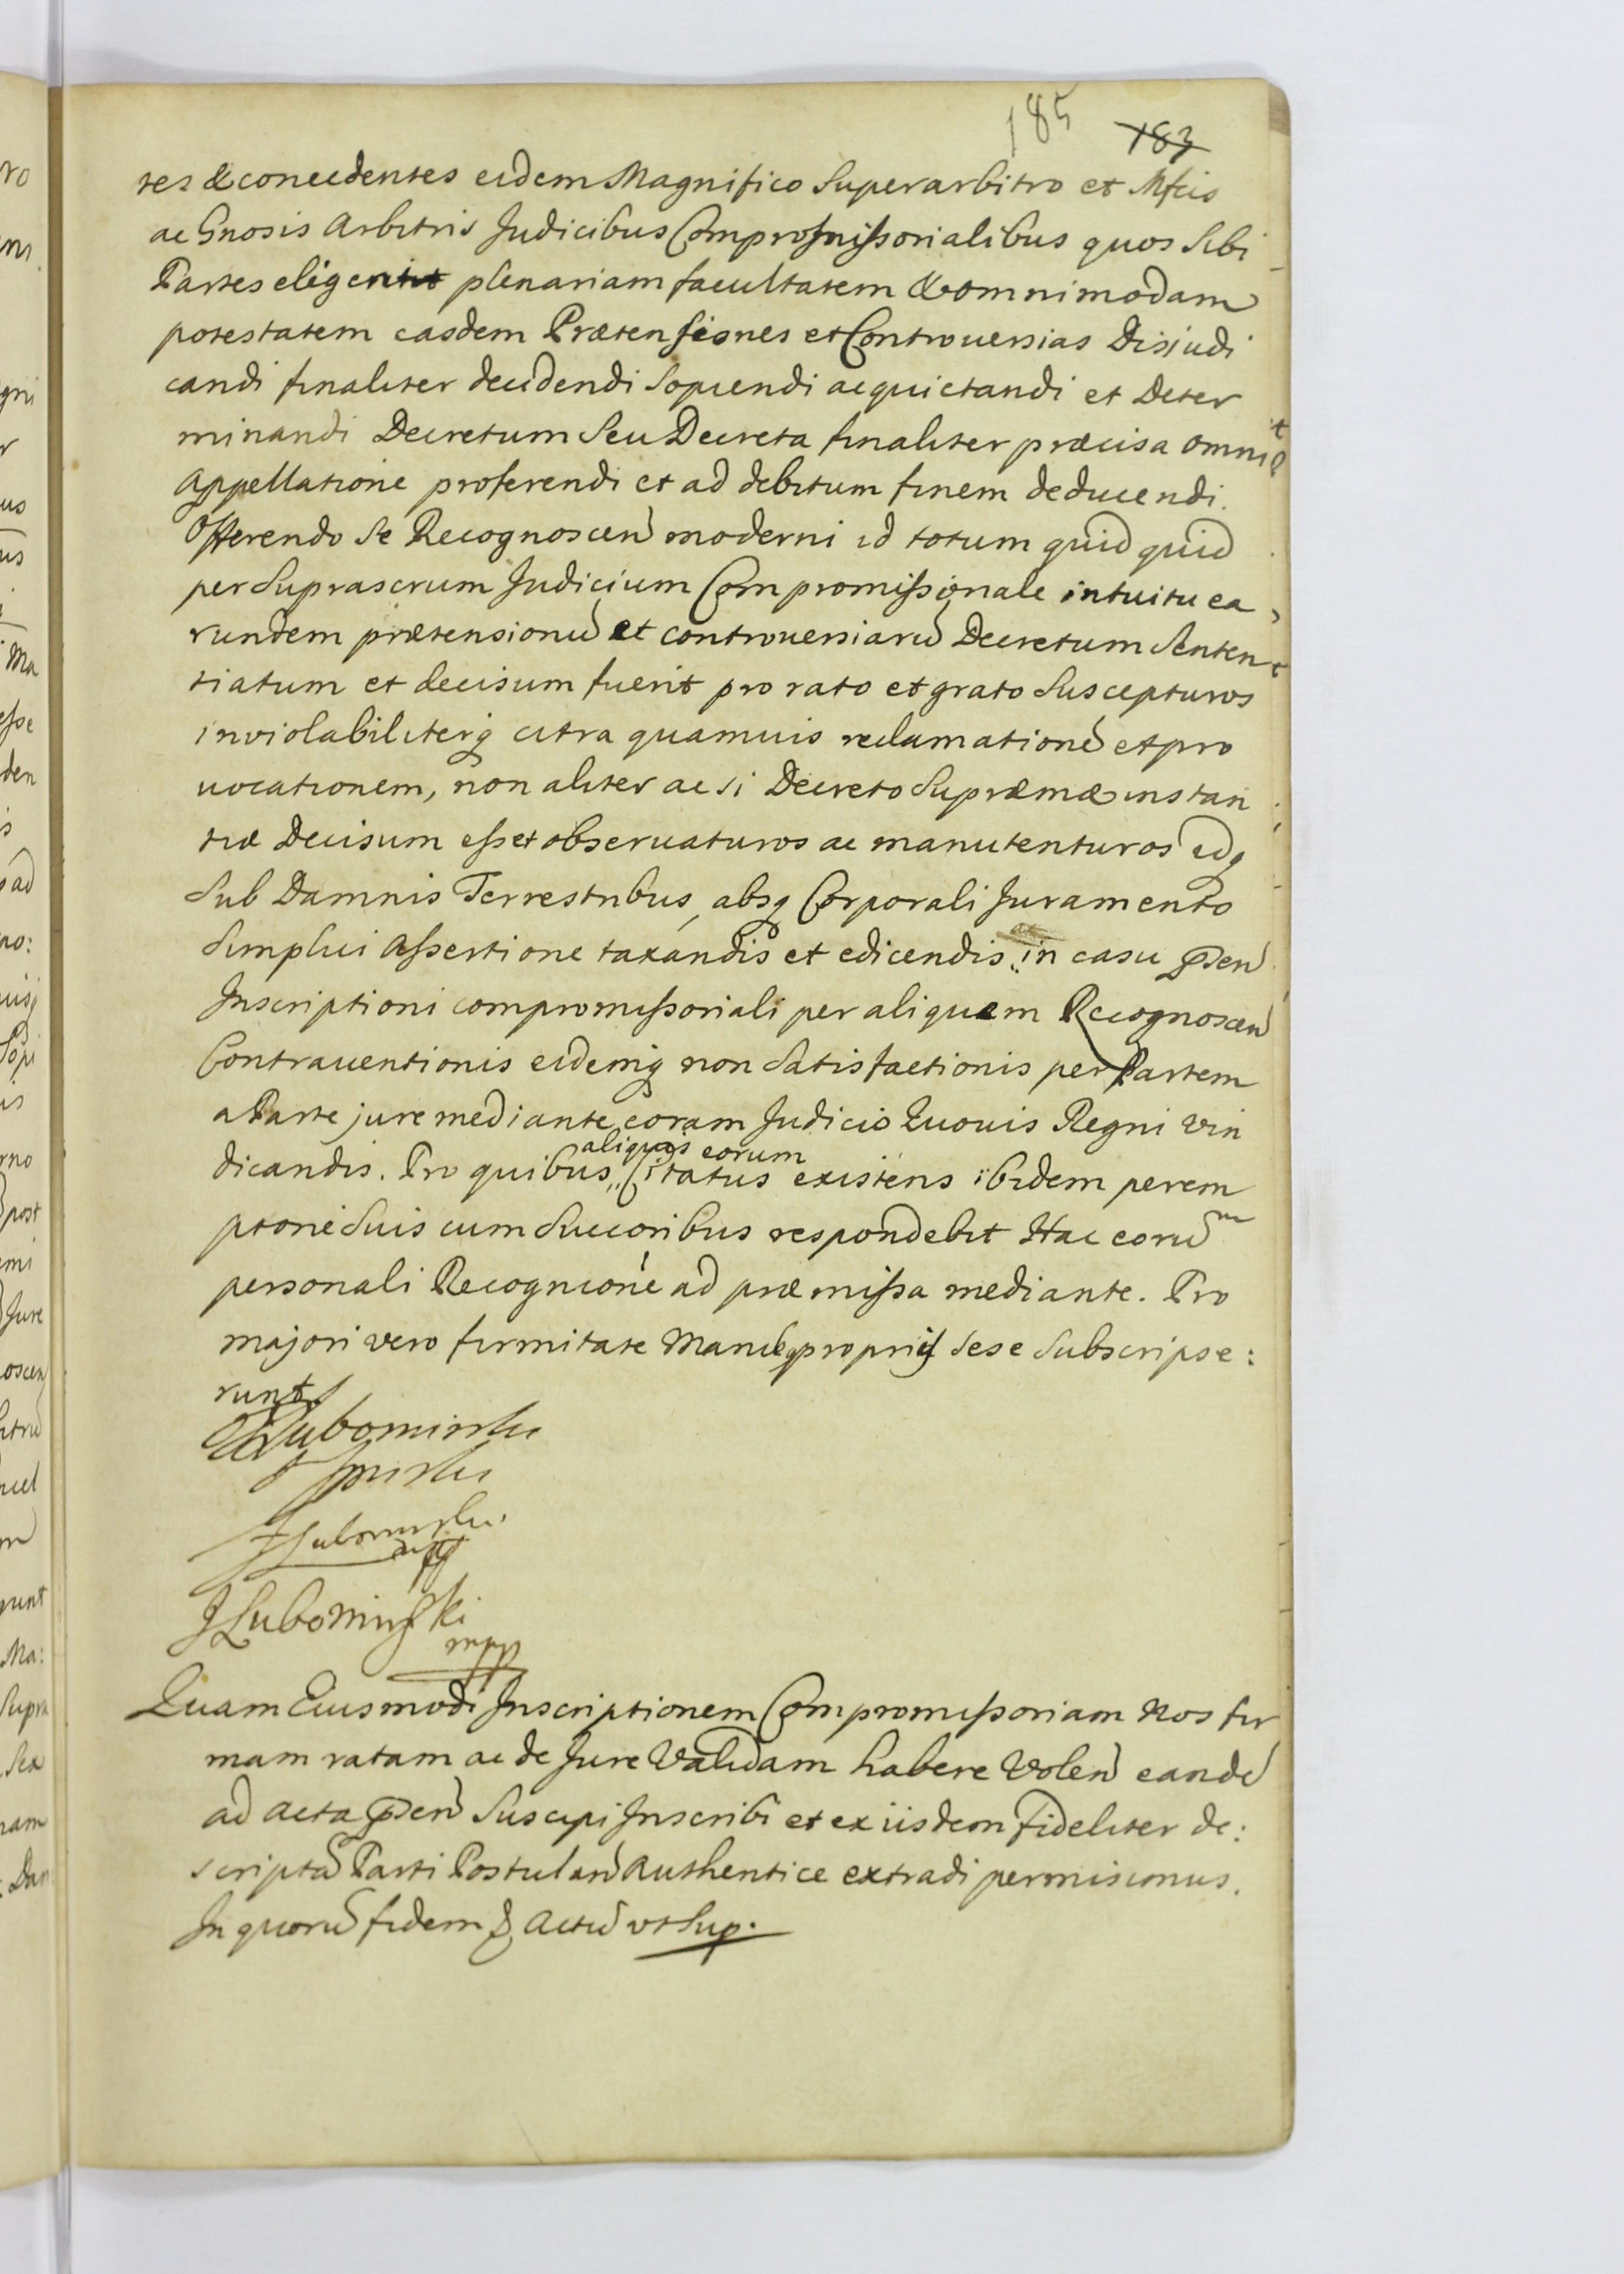 185 183
tes & concedentes eidem Magnifico Superarbitro et Mfcis
ac Gnosis Arbitris Judicibus Compromissorialibus quos sibi
Partes eligerint plenariam facultatem & omnimodam
potestatem easdem Prætensiones et Controversias Disjudi
candi finaliter decidendi sopiendi acquietandi et Deter
minandi Decretum seu Decreta finaliter præcisa omni
Appellatione proferendi et ad debitum finem deducendi.
Offerendo se Recognoscen moderni id totum quid quid
per suprascrum Judicium Compromissionale intuitu ea
rundem prætensionũ et controuersiarũ Decretum senten
tiatum et decisum fuerit pro rato et grato suscepturos
inviolabiliterq citra quamuis reclamationẽ et pro
uocationem, non aliter ac si Decreto supræmæ instan
tiæ Decisum esset obseruaturos ac manutenturos idq
sub Damnis Terrestribus, absq Corporali Juramento
simplici Assertione taxandis et edicendis in casu pñen
Inscriptioni compromissoriali per aliquem Recognoscen
Contrauentionis eidemq non satisfactionis per Partem
a Parte jure mediante coram Judicio Quouis Regni vin
dicandis. Pro quibus aliquis eorum Citatus existens ibidem perem
ptoriẽ suis cum succoribus respondebit Hac eorũ
personali Recognioñe ad præmissa mediante. Pro
majori vero firmitate Manibq proprijs sese subscripse:
runt
Lubomirski

Lubomirski
JLubomirski
mpp
Quam Eiusmodi Inscriptionem Compromissoriam Nos fir
mam ratam ac de Jure Validam habere Volen eandẽ
ad acta pñen suscipi Inscribi et ex iisdem fideliter de:
scriptã Parti Postulan Authentice extradi permisimus.
In quorũ fidem & Actũ ut sup.